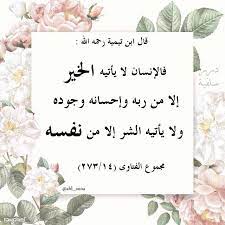 قال ابن تيمية رحمه الله :
فالإنسان لا يأتيه الخير
إلا من ربه وإحسانه وجوده
ولا يأتيه الشر إلا من نفسه
مجموع الفتاوى (١٤/ ٢٧٣)